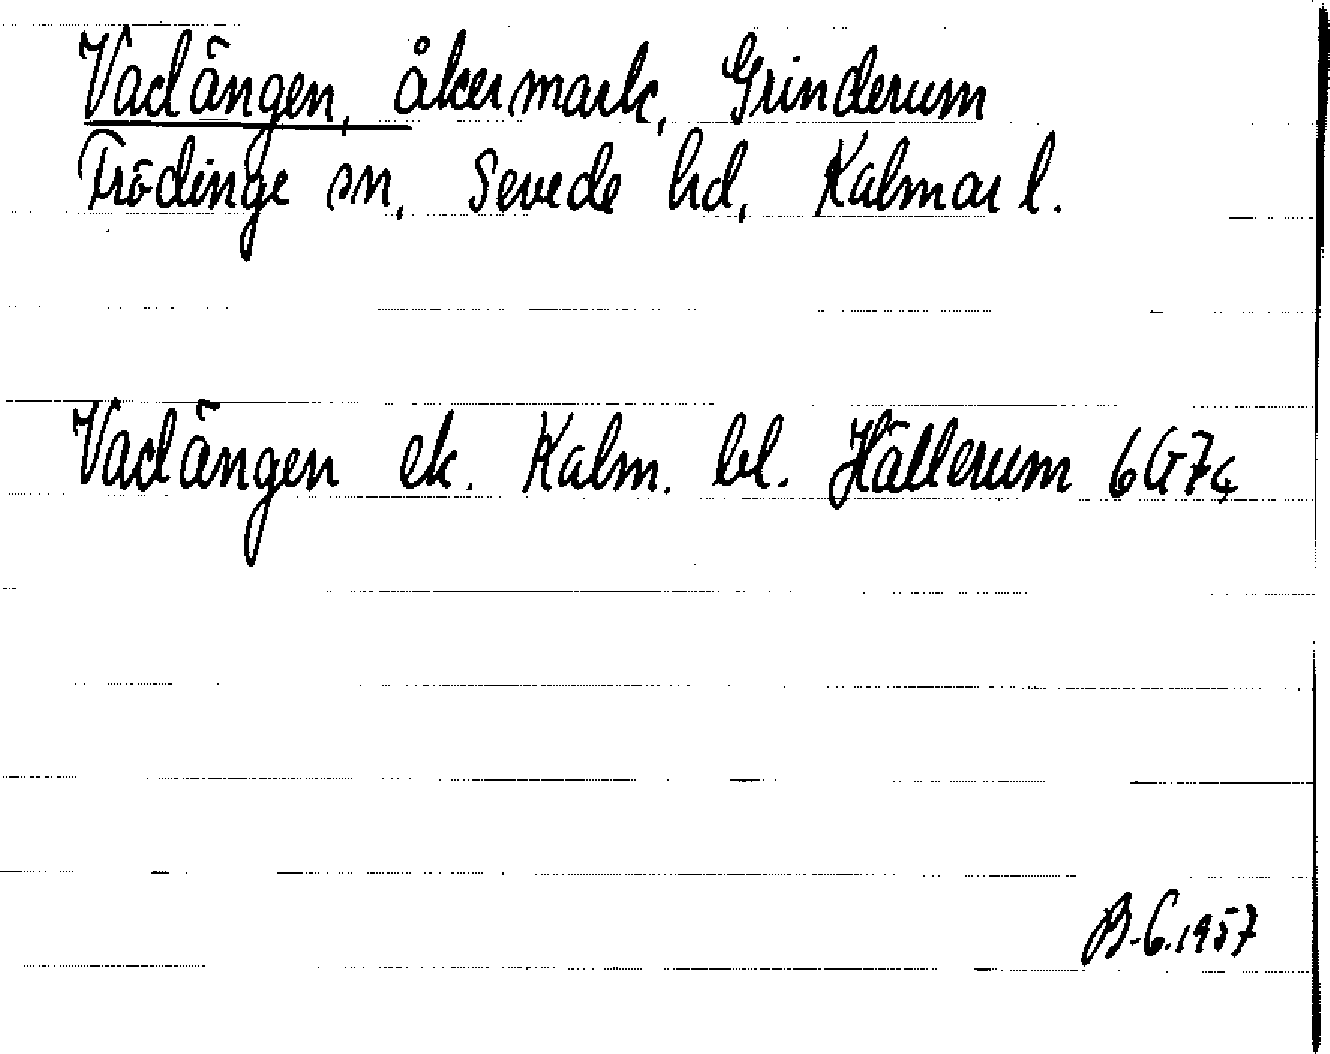 Vadängen, åkermark, Grinderum
Frödinge sn, Sevede hd, Kalmar l.
Vadängen ek. Kalm. bl. Hällerum 6G7c
B-G.1957